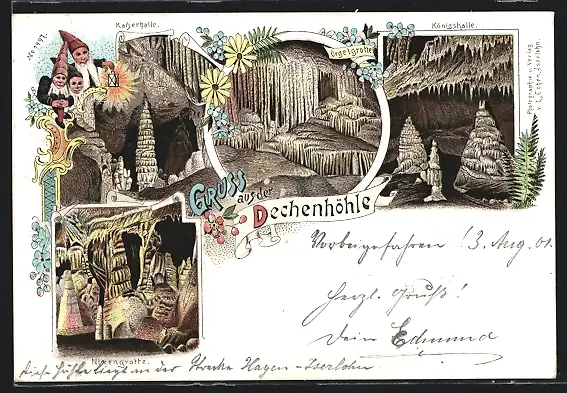 No 1497.
Kaiserhalle.
Orgelgrotte
Königshalle.
Photographie u. Verlag
v. L. Cohen, Iserlohn.
Gruss
aus der
Dechenhöhle
Vorbeigefahren 13 Aug. 01.
Herzl. Gruß!
Dein Edmund
Nixengrotte.
Diese Höhle liegt an der Strecke Hagen-Iserlohn